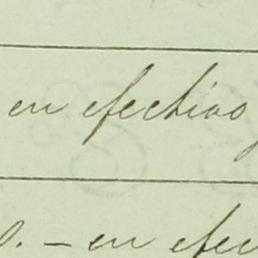 en efectivo
o. - en efec